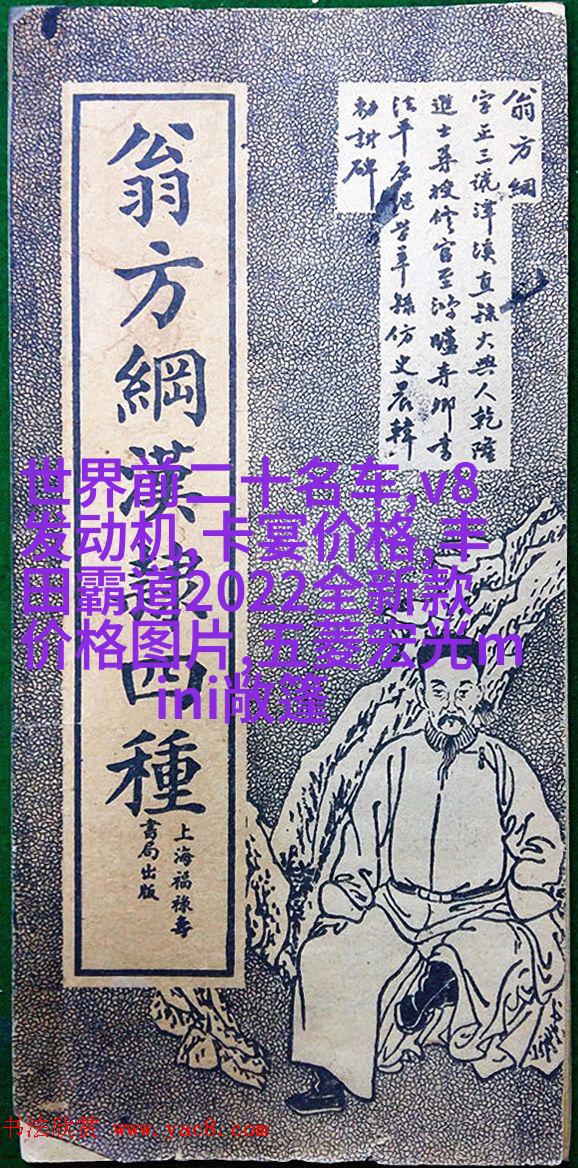 翁方綱
字正三號潭溪直隸大興人乾隆
進士尋授修官至鴻臚寺卿書
法平原繼學率更隸仿史晨韓
勅封碑
翁方綱漢隸四種
上海福祿壽
書局出版
世界前二十名车,v8
发动机,卡宴价格,丰
田霸道2022全新款
价格图片,五菱宏光m
ini敞篷
书法欣赏 www.yac8.com